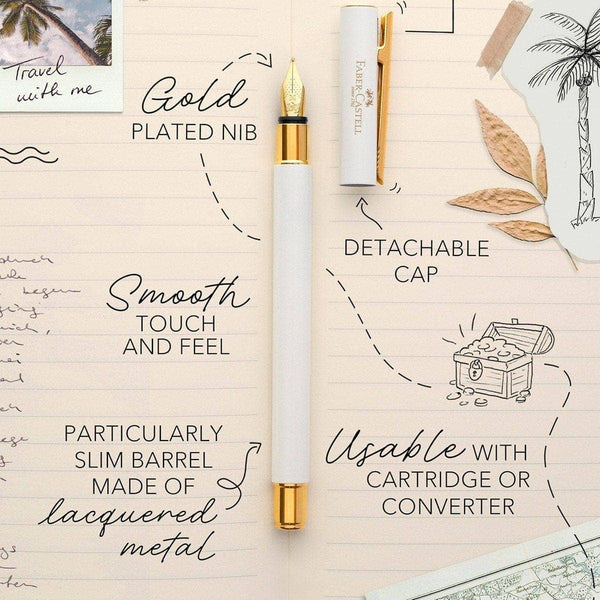 Travel
with me
Gold
PLATED NIB
FABER-CASTELL
since 1761
DETACHABLE
CAP
Smooth
TOUCH
AND FEEL
PARTICULARLY
SLIM BARREL
MADE OF
lacquered
metal
Usable WITH
CARTRIDGE OR
CONVERTER